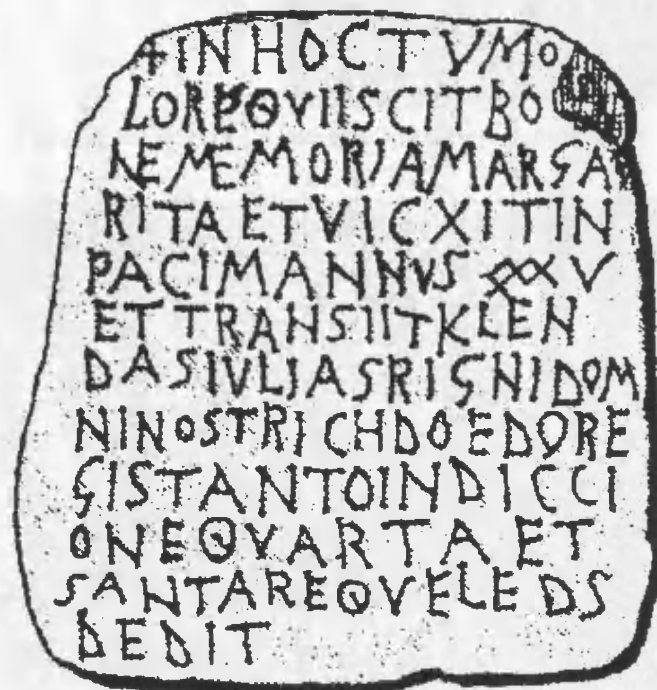 + IN HOC TVMO
LO REQVIISCIT BO
NE MEMORIA MARGA
RITA ET VICXIT IN
PACIM ANNVS XXXV
ET TRANSIIT KLEN
DAS IVLIAS RIGNI DOM
NI NOSTRI CHDOEDO RE
GIS TANTO INDICCI
ONE QVARTA ET
SANTA REQVELE DS
DEDIT